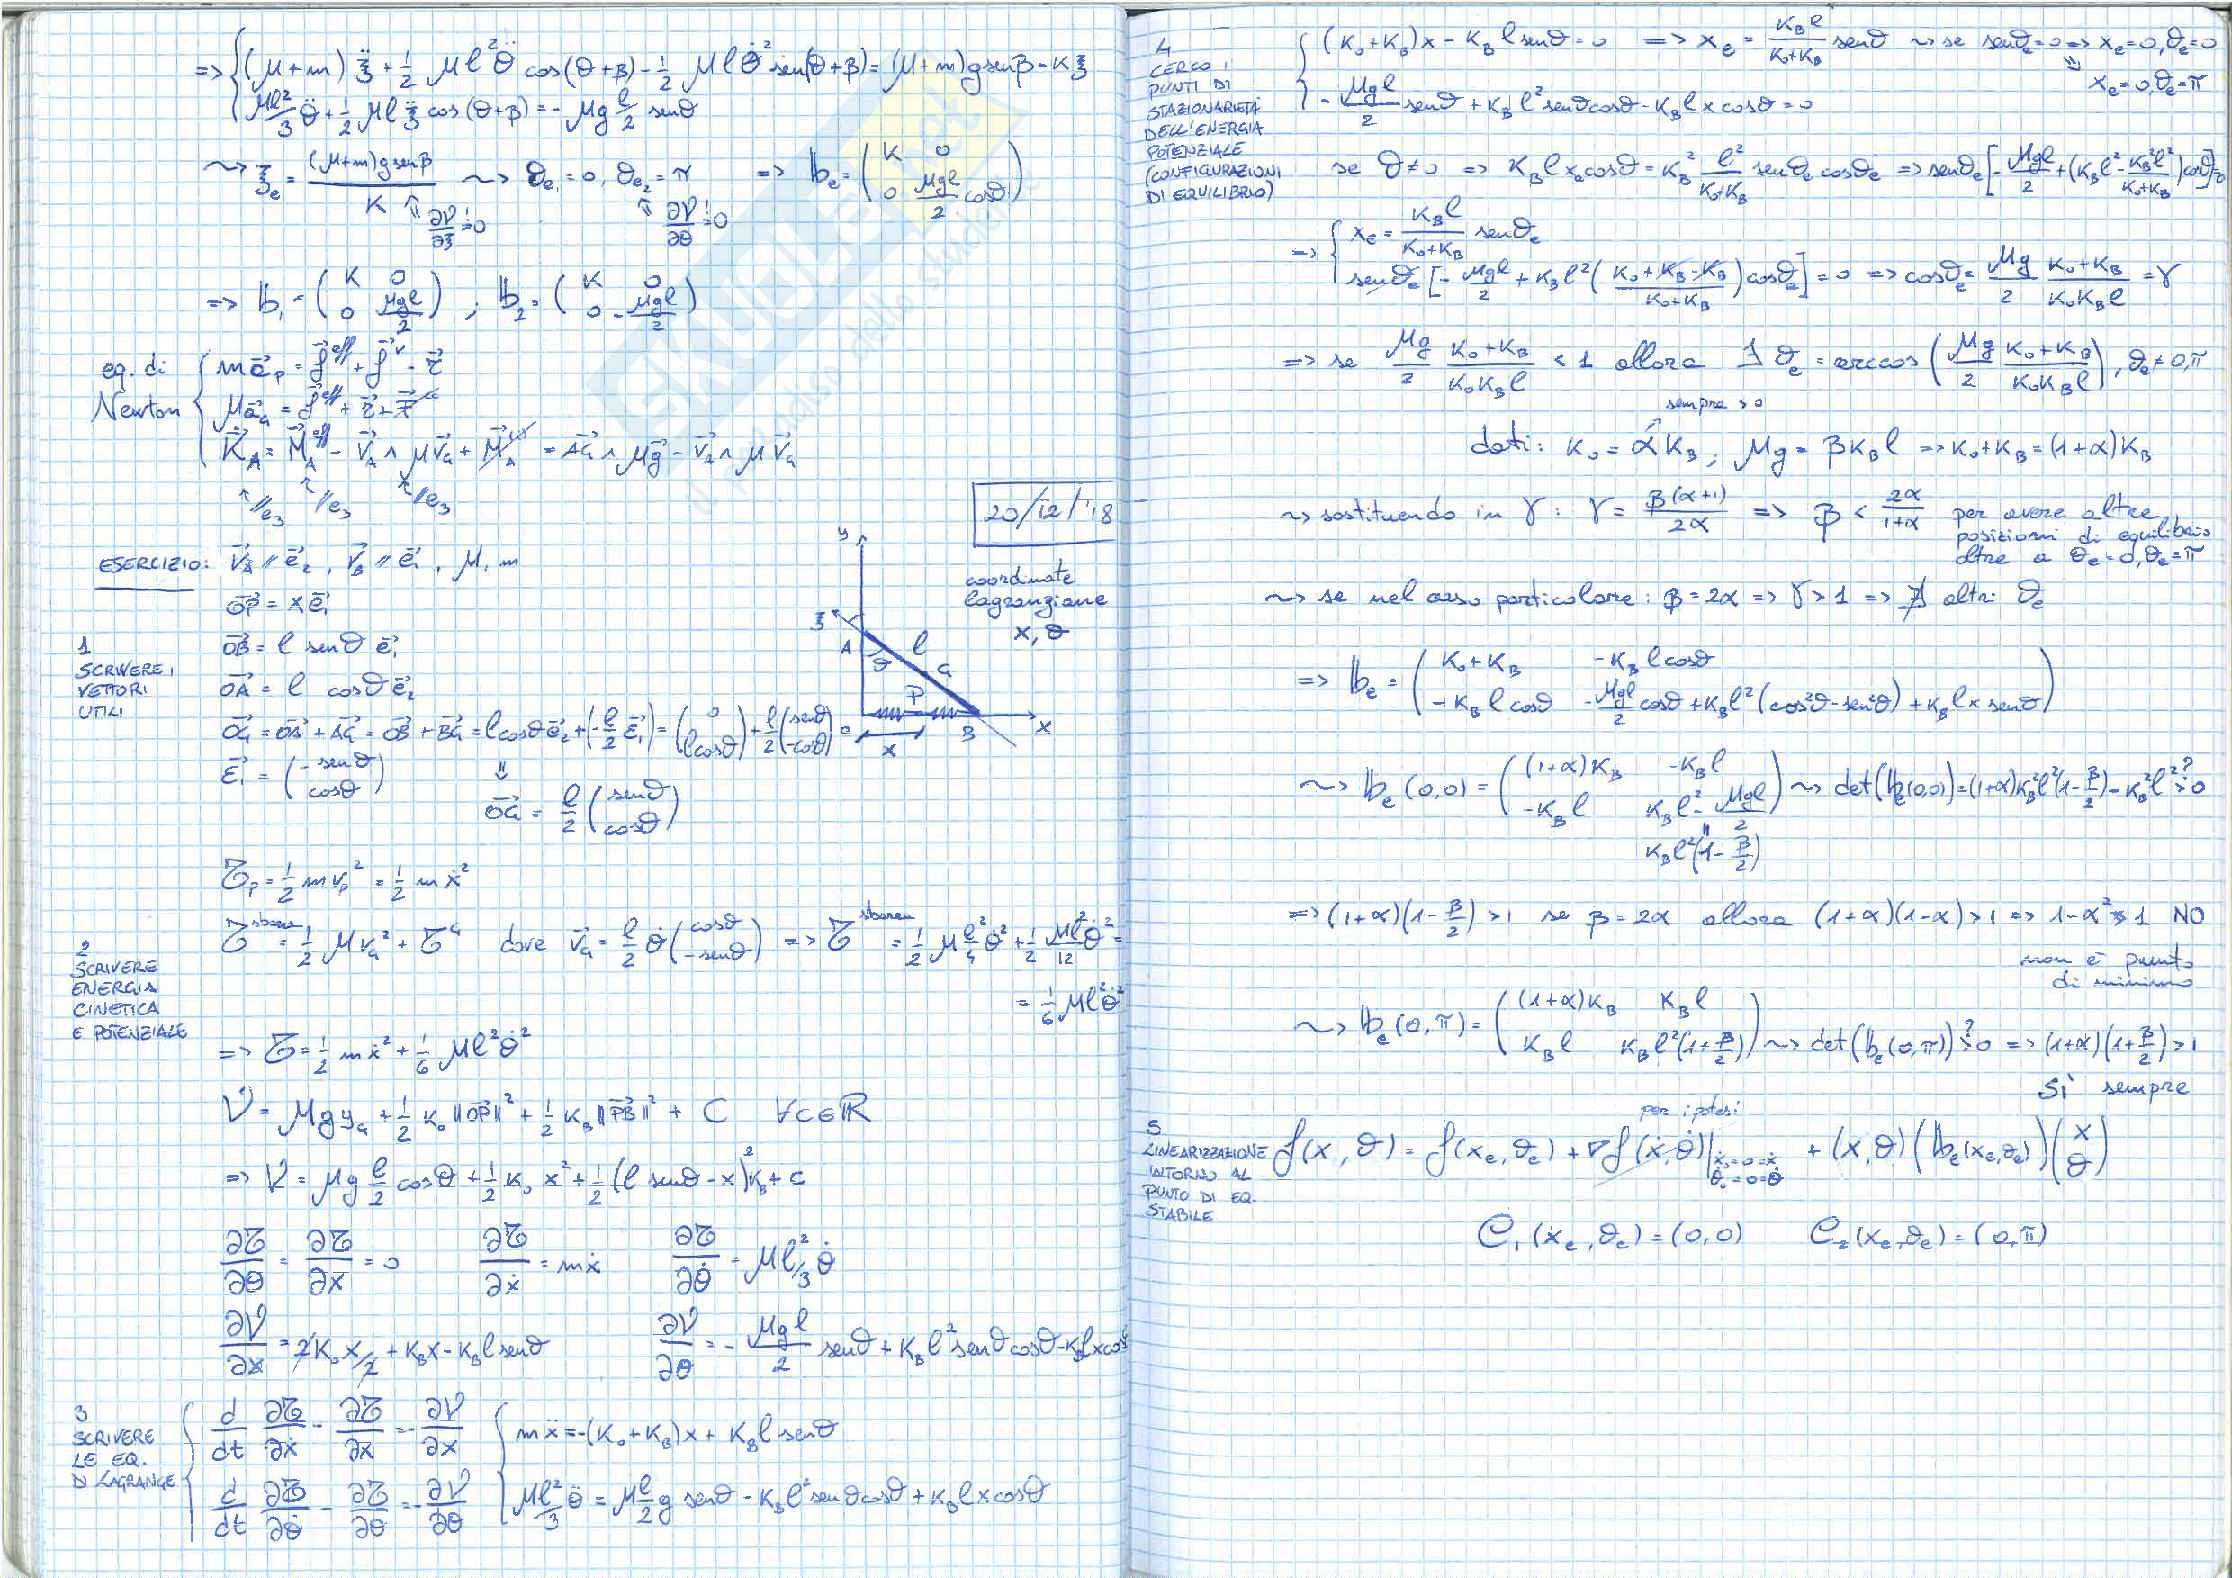 => { (M+m) ξ̈ + 1/2 Ml²θ̈ cos(θ+β) - 1/2 Mlθ̇² sen(θ+β) = (M+m)g senβ - Kξ
Ml²/3 θ̈ + 1/2 Ml ξ̈ cos(θ+β) = - Mg l/2 senθ
~> ξe = (M+m)g senβ / K ~> θe₁ = 0, θe₂ = π => be = (K 0
0 Mgl/2 cosθ)
⇑ ∂V/∂ξ = 0 ⇑ ∂V/∂θ = 0
=> b₁ = (K 0
0 Mgl/2) ; b₂ = (K 0
0 -Mgl/2)
eq. di
Newton
{ m a⃗p = f⃗ eff + f⃗ v - τ⃗
M a⃗G = f⃗ eff + τ⃗ +
K⃗̇A = M⃗A eff - v⃗A ∧ Mv⃗G + M⃗A = AG⃗ ∧ Mg⃗ - v⃗A ∧ Mv⃗G
//e₃ //e₃ //e₃
20/12/'18
ESERCIZIO: v⃗A // e⃗₂, v⃗B // e⃗₁, M, m
OP⃗ = x e⃗₁
1
SCRIVERE I
VETTORI
UTILI
OB⃗ = l senθ e⃗₁
OA⃗ = l cosθ e⃗₂
OG⃗ = OA⃗ + AG⃗ = OB⃗ + BG⃗ = l cosθ e⃗₂ + (-l/2 ε⃗₁) = (0
l cosθ) + l/2 (senθ
-cosθ)
ε⃗₁ = (-senθ
cosθ)
⇓
OG⃗ = l/2 (senθ
cosθ)
y
coordinate
lagrangiane
x, θ
ξ
A
l
θ
G
P
O
B
x
x
𝒯p = 1/2 m vp² = 1/2 m ẋ²
2
SCRIVERE
ENERGIA
CINETICA
E POTENZIALE
𝒯 sbarra = 1/2 M vG² + 𝒯 G dove v⃗G = l/2 θ̇ (cosθ
-senθ) => 𝒯 sbarra = 1/2 M l²/4 θ̇² + 1/2 Ml²/12 θ̇² =
= 1/6 Ml²θ̇²
=> 𝒯 = 1/2 m ẋ² + 1/6 Ml²θ̇²
V = Mg yG + 1/2 K₀ ||OP⃗||² + 1/2 KB ||PB⃗||² + C ∀C∈ℝ
=> V = Mg l/2 cosθ + 1/2 K₀ x² + 1/2 (l senθ - x)² KB + C
∂𝒯/∂θ = ∂𝒯/∂x = 0 ∂𝒯/∂ẋ = mẋ ∂𝒯/∂θ̇ = Ml²/3 θ̇
∂V/∂x = 2K₀x/2 + KBx - KB l senθ ∂V/∂θ = - Mgl/2 senθ + KB l² senθ cosθ - KB l x cosθ
3
SCRIVERE
LE EQ.
DI LAGRANGE
{ d/dt ∂𝒯/∂ẋ - ∂𝒯/∂x = - ∂V/∂x { mẍ = -(K₀+KB)x + KB l senθ
d/dt ∂𝒯/∂θ̇ - ∂𝒯/∂θ = - ∂V/∂θ Ml²/3 θ̈ = M l/2 g senθ - KB l² senθ cosθ + KB l x cosθ
4
CERCO I
PUNTI DI
STAZIONARIETÀ
DELL'ENERGIA
POTENZIALE
(CONFIGURAZIONI
DI EQUILIBRIO)
{ (K₀+KB)x - KB l senθ = 0 => xe = KB l/(K₀+KB) senθ ~> se senθe = 0 => xe = 0, θe = 0
⇓
xe = 0, θe = π
- Mgl/2 senθ + KB l² senθ cosθ - KB l x cosθ = 0
se θ ≠ 0 => KB l xe cosθ = KB² l²/(K₀+KB) senθe cosθe => senθe [- Mgl/2 + (KB l² - KB² l²/(K₀+KB)) cosθ] = 0
=> { xe = KB l/(K₀+KB) senθe
senθe [- Mgl/2 + KB l² ((K₀+KB-KB)/(K₀+KB)) cosθe] = 0 => cosθe = Mg/2 (K₀+KB)/(K₀KB l) = γ
=> se Mg/2 (K₀+KB)/(K₀KB l) < 1 allora ∃ θe = arccos (Mg/2 (K₀+KB)/(K₀KB l)), θe ≠ 0, π
sempre > 0
dati: K₀ = αKB ; Mg = βKB l => K₀+KB = (1+α)KB
~> sostituendo in γ: γ = β(α+1)/2α => β < 2α/(1+α) per avere altre
posizioni di equilibrio
oltre a θe = 0, θe = π
~> se nel caso particolare: β = 2α => γ > 1 => ∄ altri θe
=> be = (K₀+KB -KB l cosθ
-KB l cosθ -Mgl/2 cosθ + KB l² (cos²θ - sen²θ) + KB l x senθ)
~> be(0,0) = ((1+α)KB -KB l
-KB l KB l² - Mgl/2) ~> det(be(0,0)) = (1+α)KB² l² (1-β/2) - KB² l² > 0 ?
"
KB l² (1 - β/2)
=> (1+α)(1-β/2) > 1 se β = 2α allora (1+α)(1-α) > 1 => 1-α² > 1 NO
non è punto
di minimo
~> be(0,π) = ((1+α)KB KB l
KB l KB l² (1+β/2)) ~> det(be(0,π)) > 0 ? => (1+α)(1+β/2) > 1
Sì sempre
5
LINEARIZZAZIONE
INTORNO AL
PUNTO DI EQ.
STABILE
per ipotesi
f(x,θ) = f(xe,θe) + ∇f(ẋ,θ̇)| ẋ₀=0=ẋ
θ̇₀=0=θ̇ + (x,θ)(be(xe,θe))(x
θ)
C₁(xe,θe) = (0,0) C₂(xe,θe) = (0,π)